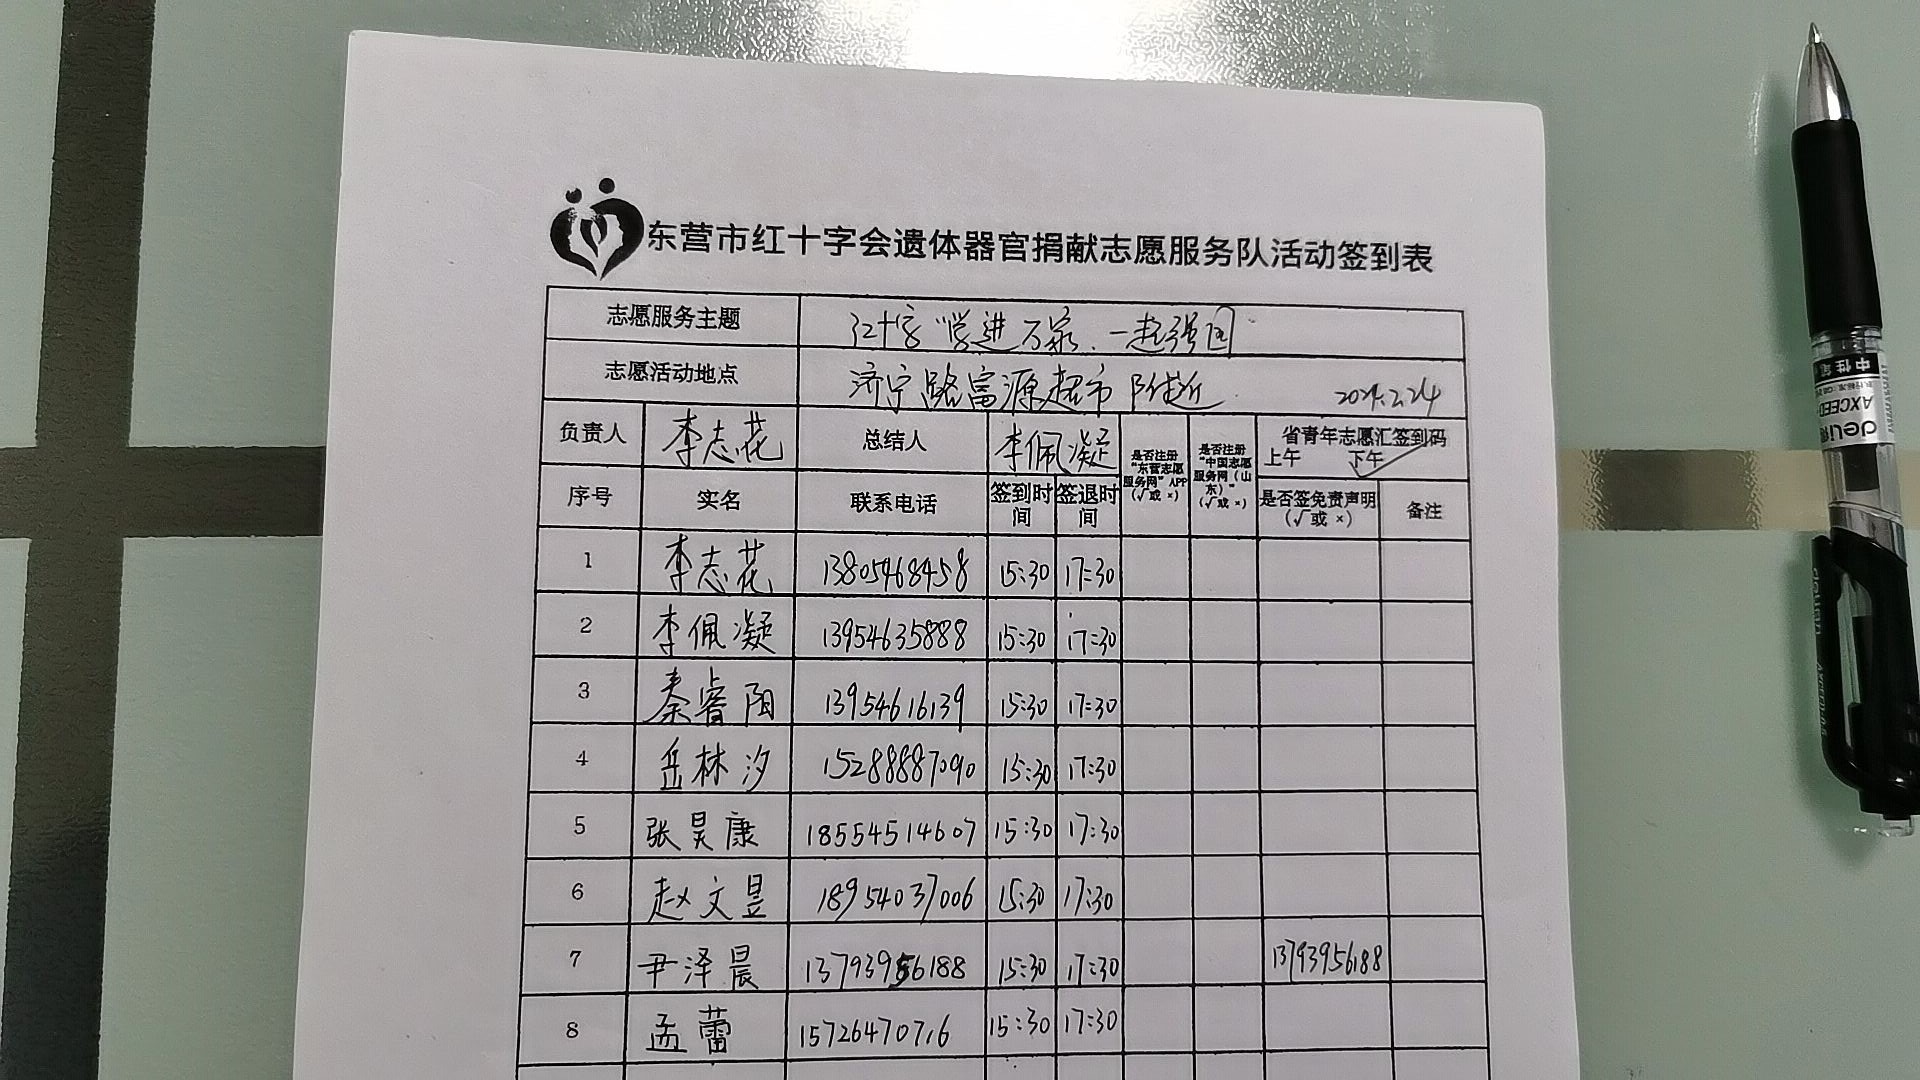 东营市红十字会遗体器官捐献志愿服务队活动签到表
志愿服务主题 红十字"学进万家.一起强国
志愿活动地点 济宁路富源超市附近 2024.2.24
负责人 李志花 总结人 李佩凝 是否注册"东营志愿服务网"APP(√或 ×) 是否注册"中国志愿服务网(山东)"(√或 ×) 省青年志愿汇签到码 上午 下午
序号 实名 联系电话 签到时间 签退时间 是否签免责声明(√或 ×) 备注
1 李志花 13805468458 15:30 17:30
2 李佩凝 13954635888 15:30 17:30
3 秦睿阳 13954616139 15:30 17:30
4 岳林汐 15288887090 15:30 17:30
5 张昊康 18554514607 15:30 17:30
6 赵文昱 18954037006 15:30 17:30
7 尹泽晨 13793956188 15:30 17:30 13793956188
8 孟蕾 15726470716 15:30 17:30
deli
中性笔